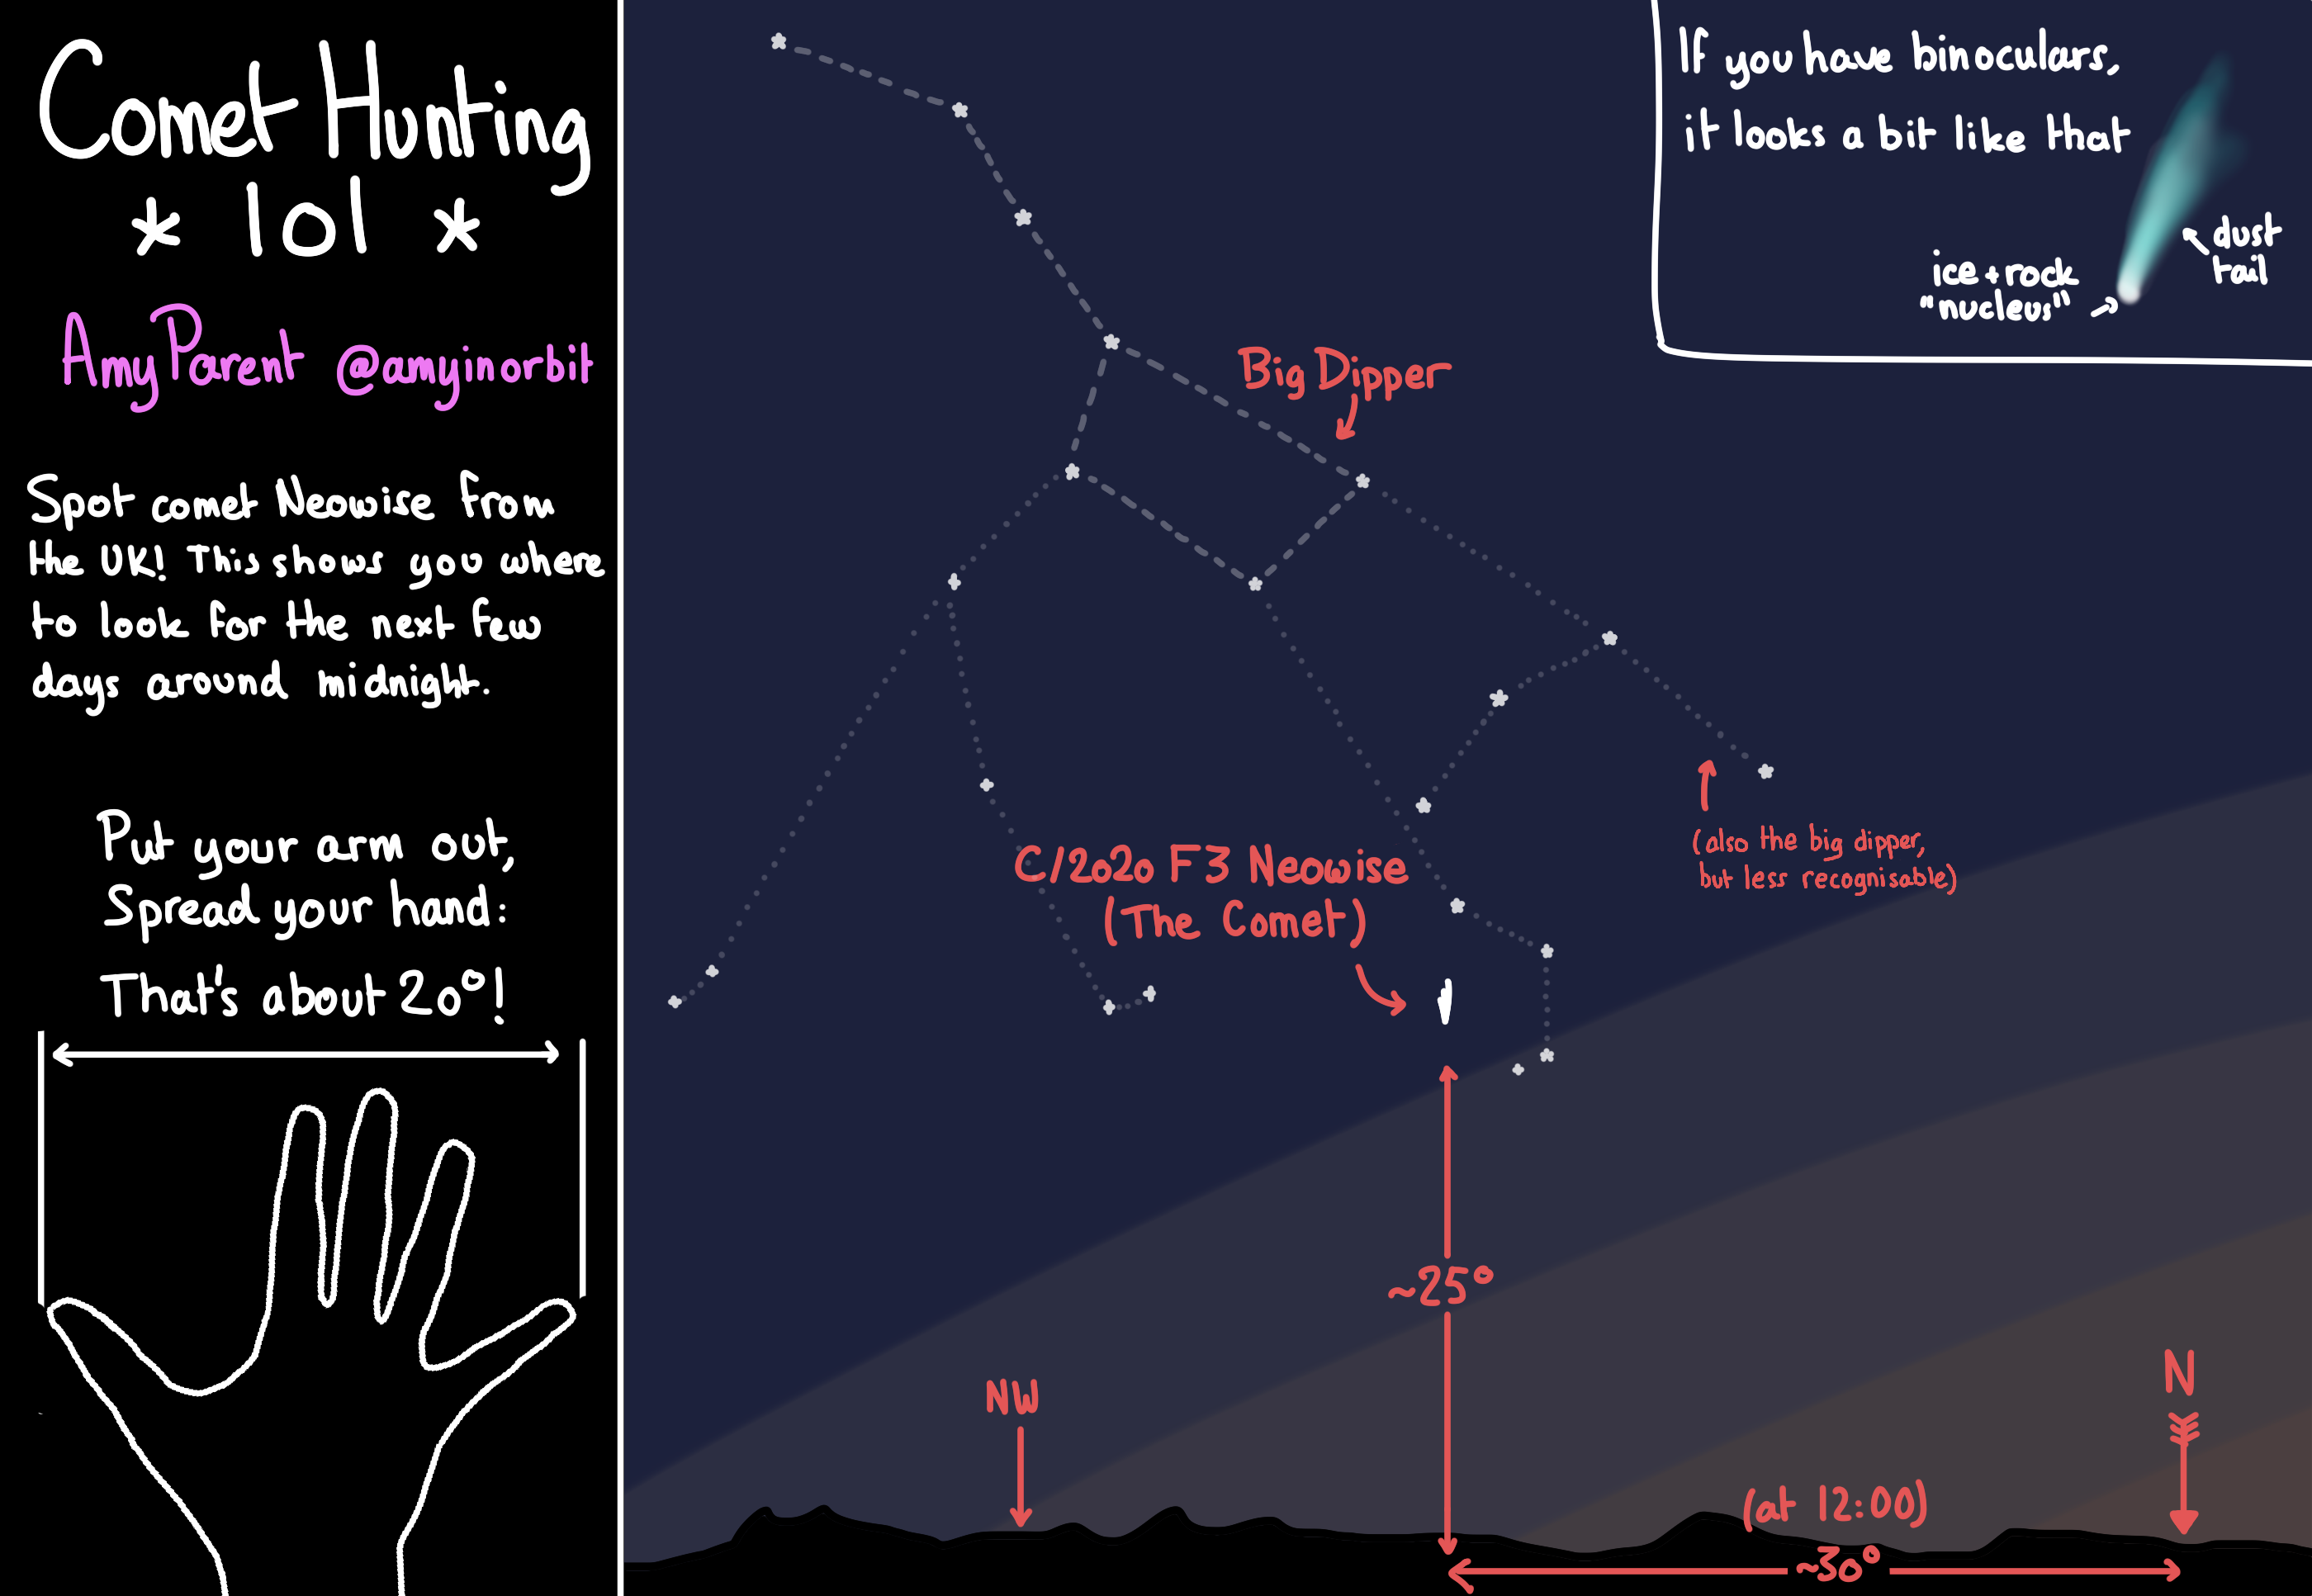 Comet Hunting
* lol *
Amy Parent @amyinorbit
Spot comet Neowise from
the UK! This shows you where
to look for the next few
days around midnight.
Put your arm out,
Spread your hand:
That's about 20°!
If you have binoculars,
it looks a bit like that
dust
tail
ice + rock
"nucleus"
Big Dipper
(also the big dipper,
but less recognisable)
C/2020 F3 Neowise
(The Comet)
~25°
NW
N
(at 12:00)
~30°